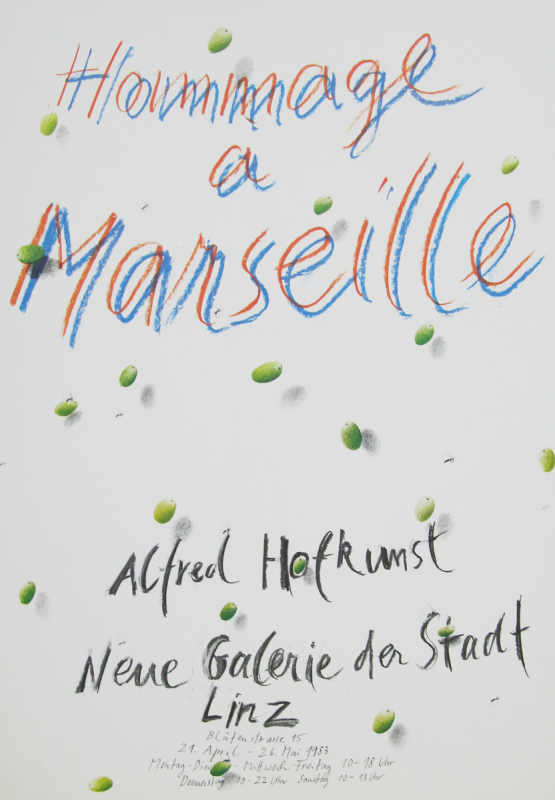 Hommage
a
Marseille
Alfred Hofkunst
Neue Galerie der Stadt
Linz
Blütenstrasse 15
21. April - 26. Mai 1983
Montag - Mittwoch - Freitag 10 - 18 Uhr
Donnerstag 10 - 22 Uhr Samstag 10 - 13